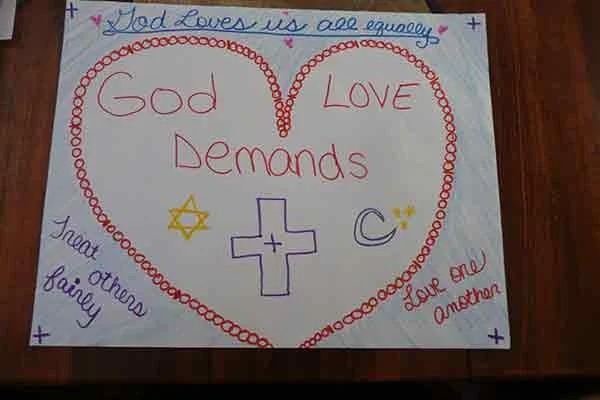 God Loves us all equally
God LOVE
Demands
Treat
others
fairly
Love one
another